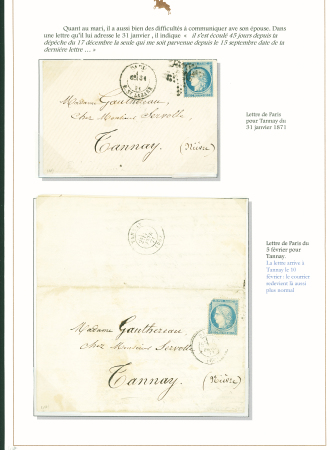 Quant au mari, il a aussi bien des difficultés à communiquer ave son épouse. Dans
une lettre qu'il lui adresse le 31 janvier , il indique « il s'est écoulé 45 jours depuis ta
dépêche du 17 décembre la seule qui me soit parvenue depuis le 15 septembre date de ta
dernière lettre ... »
Madame Gauthereau
Chez Monsieur Servolle
Tannay.
(Nièvre)
Lettre de Paris
pour Tannay du
31 janvier 1871
Lettre de Paris du
5 février pour
Tannay.
La lettre arrive à
Tannay le 10
février : le courrier
redevient là aussi
plus normal
Madame Gauthereau
Chez Monsieur Servolle
Tannay.
(Nièvre)